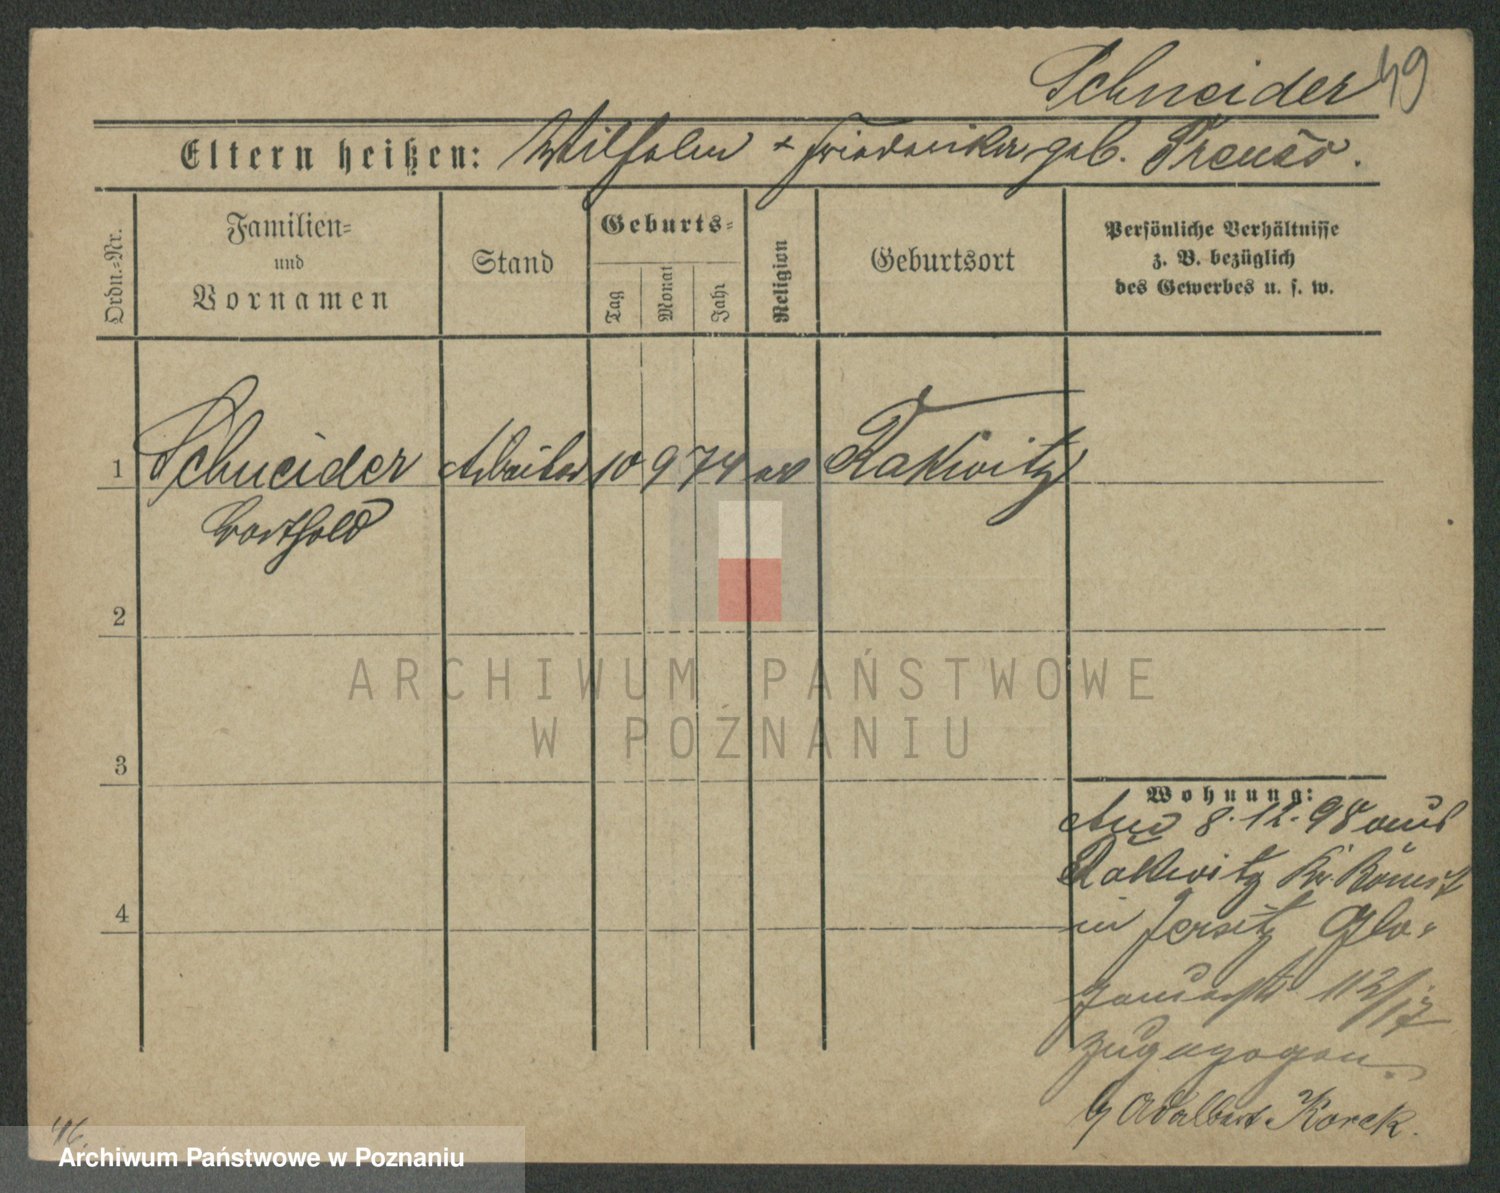 Schneider 49
Eltern heißen: Wilhelm + Friederike geb. Preuss.
Ordn.-Nr.
Familien-
und
Vornamen
Stand
Geburts-
Tag
Monat
Jahr
Religion
Geburtsort
Persönliche Verhältnisse
z. B. bezüglich
des Gewerbes u. s. w.
1 Schneider Arbeiter 10 9 74 ev Rakwitz
Berthold
2
3
4
ARCHIWUM PAŃSTWOWE
W POZNANIU
Wohnung:
8.12.98 aus
Rakwitz Kr. Bomst
in Jersitz Glo-
gauerstr 112/
zugezogen.
b/ Adalbert Korek.
46.
Archiwum Państwowe w Poznaniu